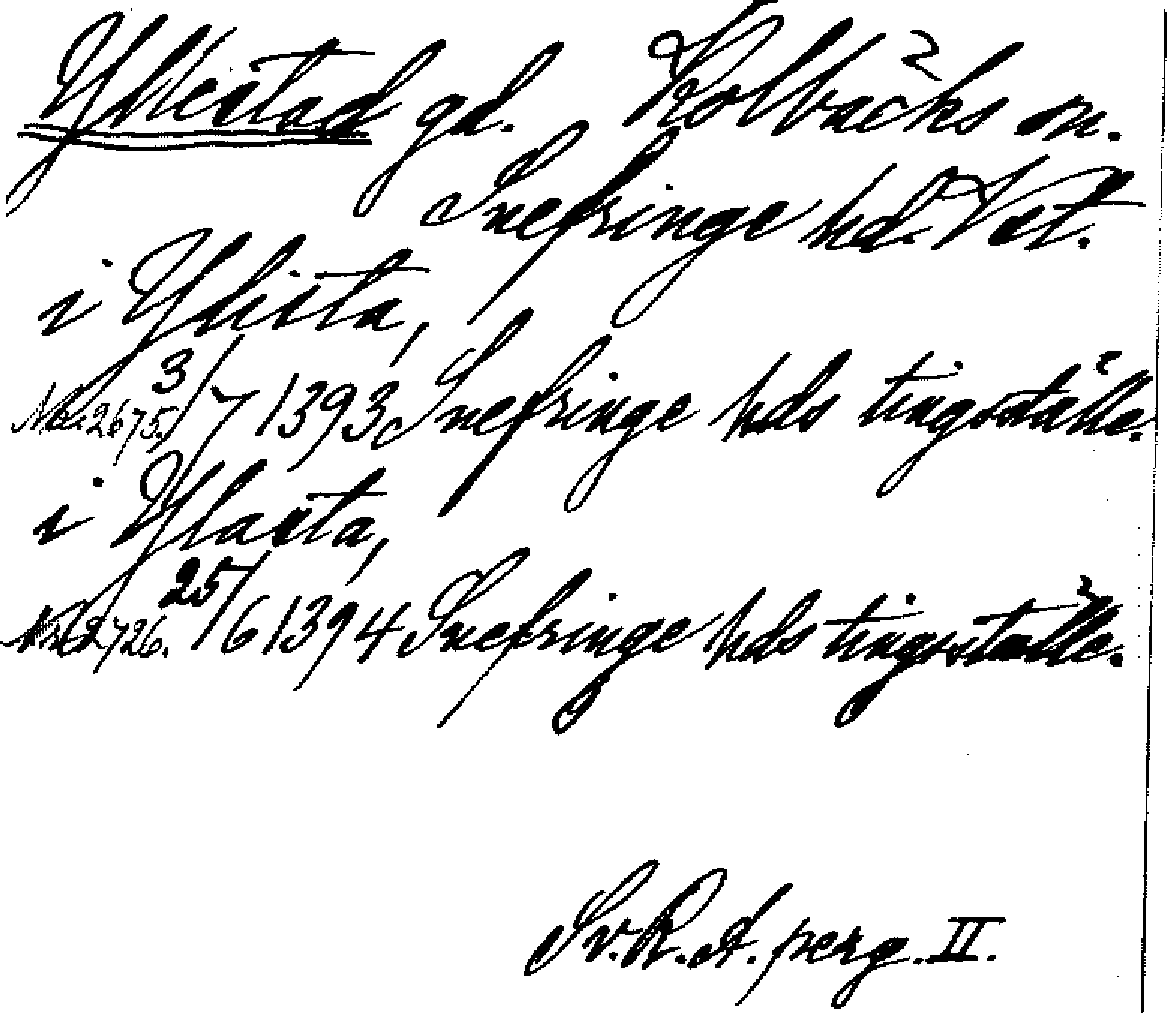 Yllestad gd. Kolbäcks sn.
Snefringe hd. Vstl.
i Ylista,
No. 2675. 3/7 1393 Snefringe hds tingställe.
i Ylasta,
No. 2726. 25/6 1394 Snefringe hds tingsställe.
Sv. R. A. perg. II.